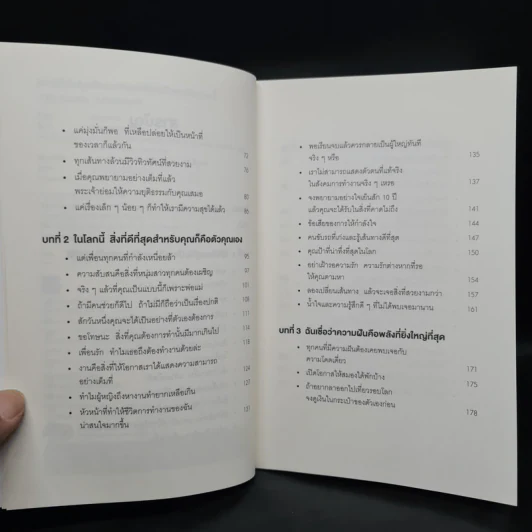 • แค่มุ่งมั่นก็พอ ที่เหลือปล่อยให้เป็นหน้าที่
ของเวลาก็แล้วกัน 72
• ทุกเส้นทางล้วนมีวิวทิวทัศน์ที่สวยงาม 76
• เมื่อคุณพยายามอย่างเต็มที่แล้ว
พระเจ้าย่อมให้ความยุติธรรมกับคุณเสมอ
• แค่เรื่องเล็ก ๆ น้อย ๆ ก็ทำให้เรามีความสุขได้แล้ว
บทที่ 2 ในโลกนี้ สิ่งที่ดีที่สุดสำหรับคุณก็คือตัวคุณเอง
• แด่เพื่อนทุกคนที่กำลังเหนื่อยล้า
• ความสับสนคือสิ่งที่หนุ่มสาวทุกคนต้องเผชิญ
• จริง ๆ แล้วที่คุณเป็นแบบนี้ก็เพราะพ่อแม่
• ถ้ามีคนช่วยก็ดีไป ถ้าไม่มีก็ถือว่าเป็นเรื่องปกติ
• สักวันหนึ่งคุณจะได้เป็นอย่างที่ตัวเองต้องการ
• ขอโทษนะ สิ่งที่คุณต้องการทำนั้นมีมากเกินไป
• เพื่อนรัก ทำไมเธอถึงต้องทำงานด้วยล่ะ
• งานคือสิ่งที่ให้โอกาสเราได้แสดงความสามารถ
อย่างเต็มที่
• ทำไมผู้หญิงถึงหางานทำยากเหลือเกิน
• หัวหน้าที่ทำให้ชีวิตการทำงานของฉัน
น่าสนใจมากขึ้น
• พอเรียนจบแล้วควรกลายเป็นผู้ใหญ่ทันที
จริง ๆ หรือ 135
• เราไม่สามารถแสดงตัวตนที่แท้จริง
ในสังคมการทำงานจริง ๆ เหรอ 137
• จงพยายามอย่างใจเย็นสัก 10 ปี
แล้วคุณจะได้รับในสิ่งที่คาดไม่ถึง 141
• ข้อเสียของการให้กำลังใจ 144
• คนขับรถที่เก่งและรู้เส้นทางดีที่สุด 147
• คุณป้าที่น่าทึ่งที่สุดในโลก 150
• อย่าเฝ้ารอความรัก ความรักต่างหากที่รอ
ให้คุณตามหา 154
• ลองเปลี่ยนเส้นทาง แล้วจะเจอสิ่งที่สวยงามกว่า 157
• น้ำใจและความรู้สึกดี ๆ ที่ไม่ได้พบเจอมานาน 161
บทที่ 3 ฉันเชื่อว่าความฝันคือพลังที่ยิ่งใหญ่ที่สุด
• ทุกคนที่มีความฝันต้องเคยพบเจอกับ
ความโดดเดี่ยว 171
• เปิดโอกาสให้สมองได้พักบ้าง 175
• ถ้าอยากลาออกไปเที่ยวรอบโลก
จงดูเงินในกระเป๋าของตัวเองก่อน 178